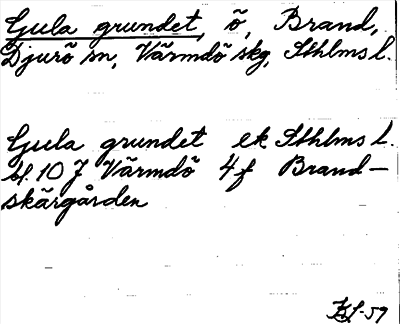 Gula grundet, ö, Brand,
Djurö sn, Värmdö skg, Sthlms l.
Gula grundet ek Sthlms l.
bl. 107 Värmdö 4f Brand-
skärgården